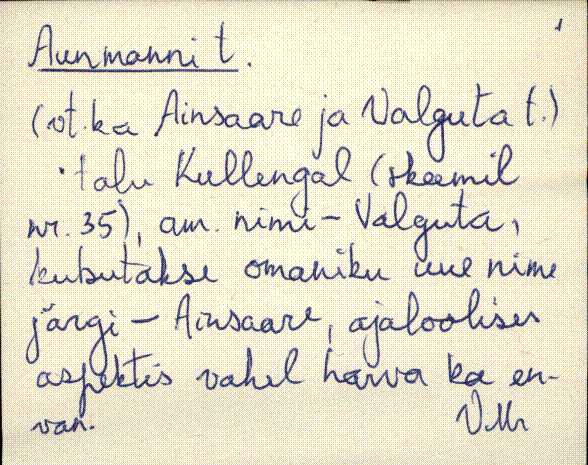 1
Aunmanni t.
(vt. ka Ainsaare ja Valguta t.)
talu Kullengal (skeemil
nr. 35), am. nimi - Valguta,
kutsutakse omaniku uue nime
järgi - Ainsaare, ajaloolises
aspektis vahel harva ka en-
van.
VMr